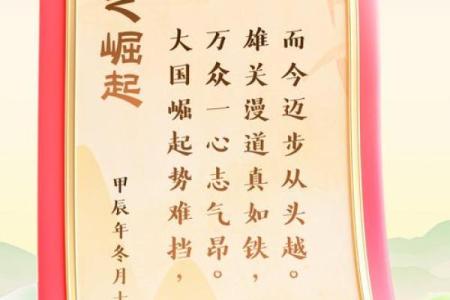 之崛起
大国崛起势难挡，
万众一心志气昂。
雄关漫道真如铁，
而今迈步从头越。
甲辰年冬月十